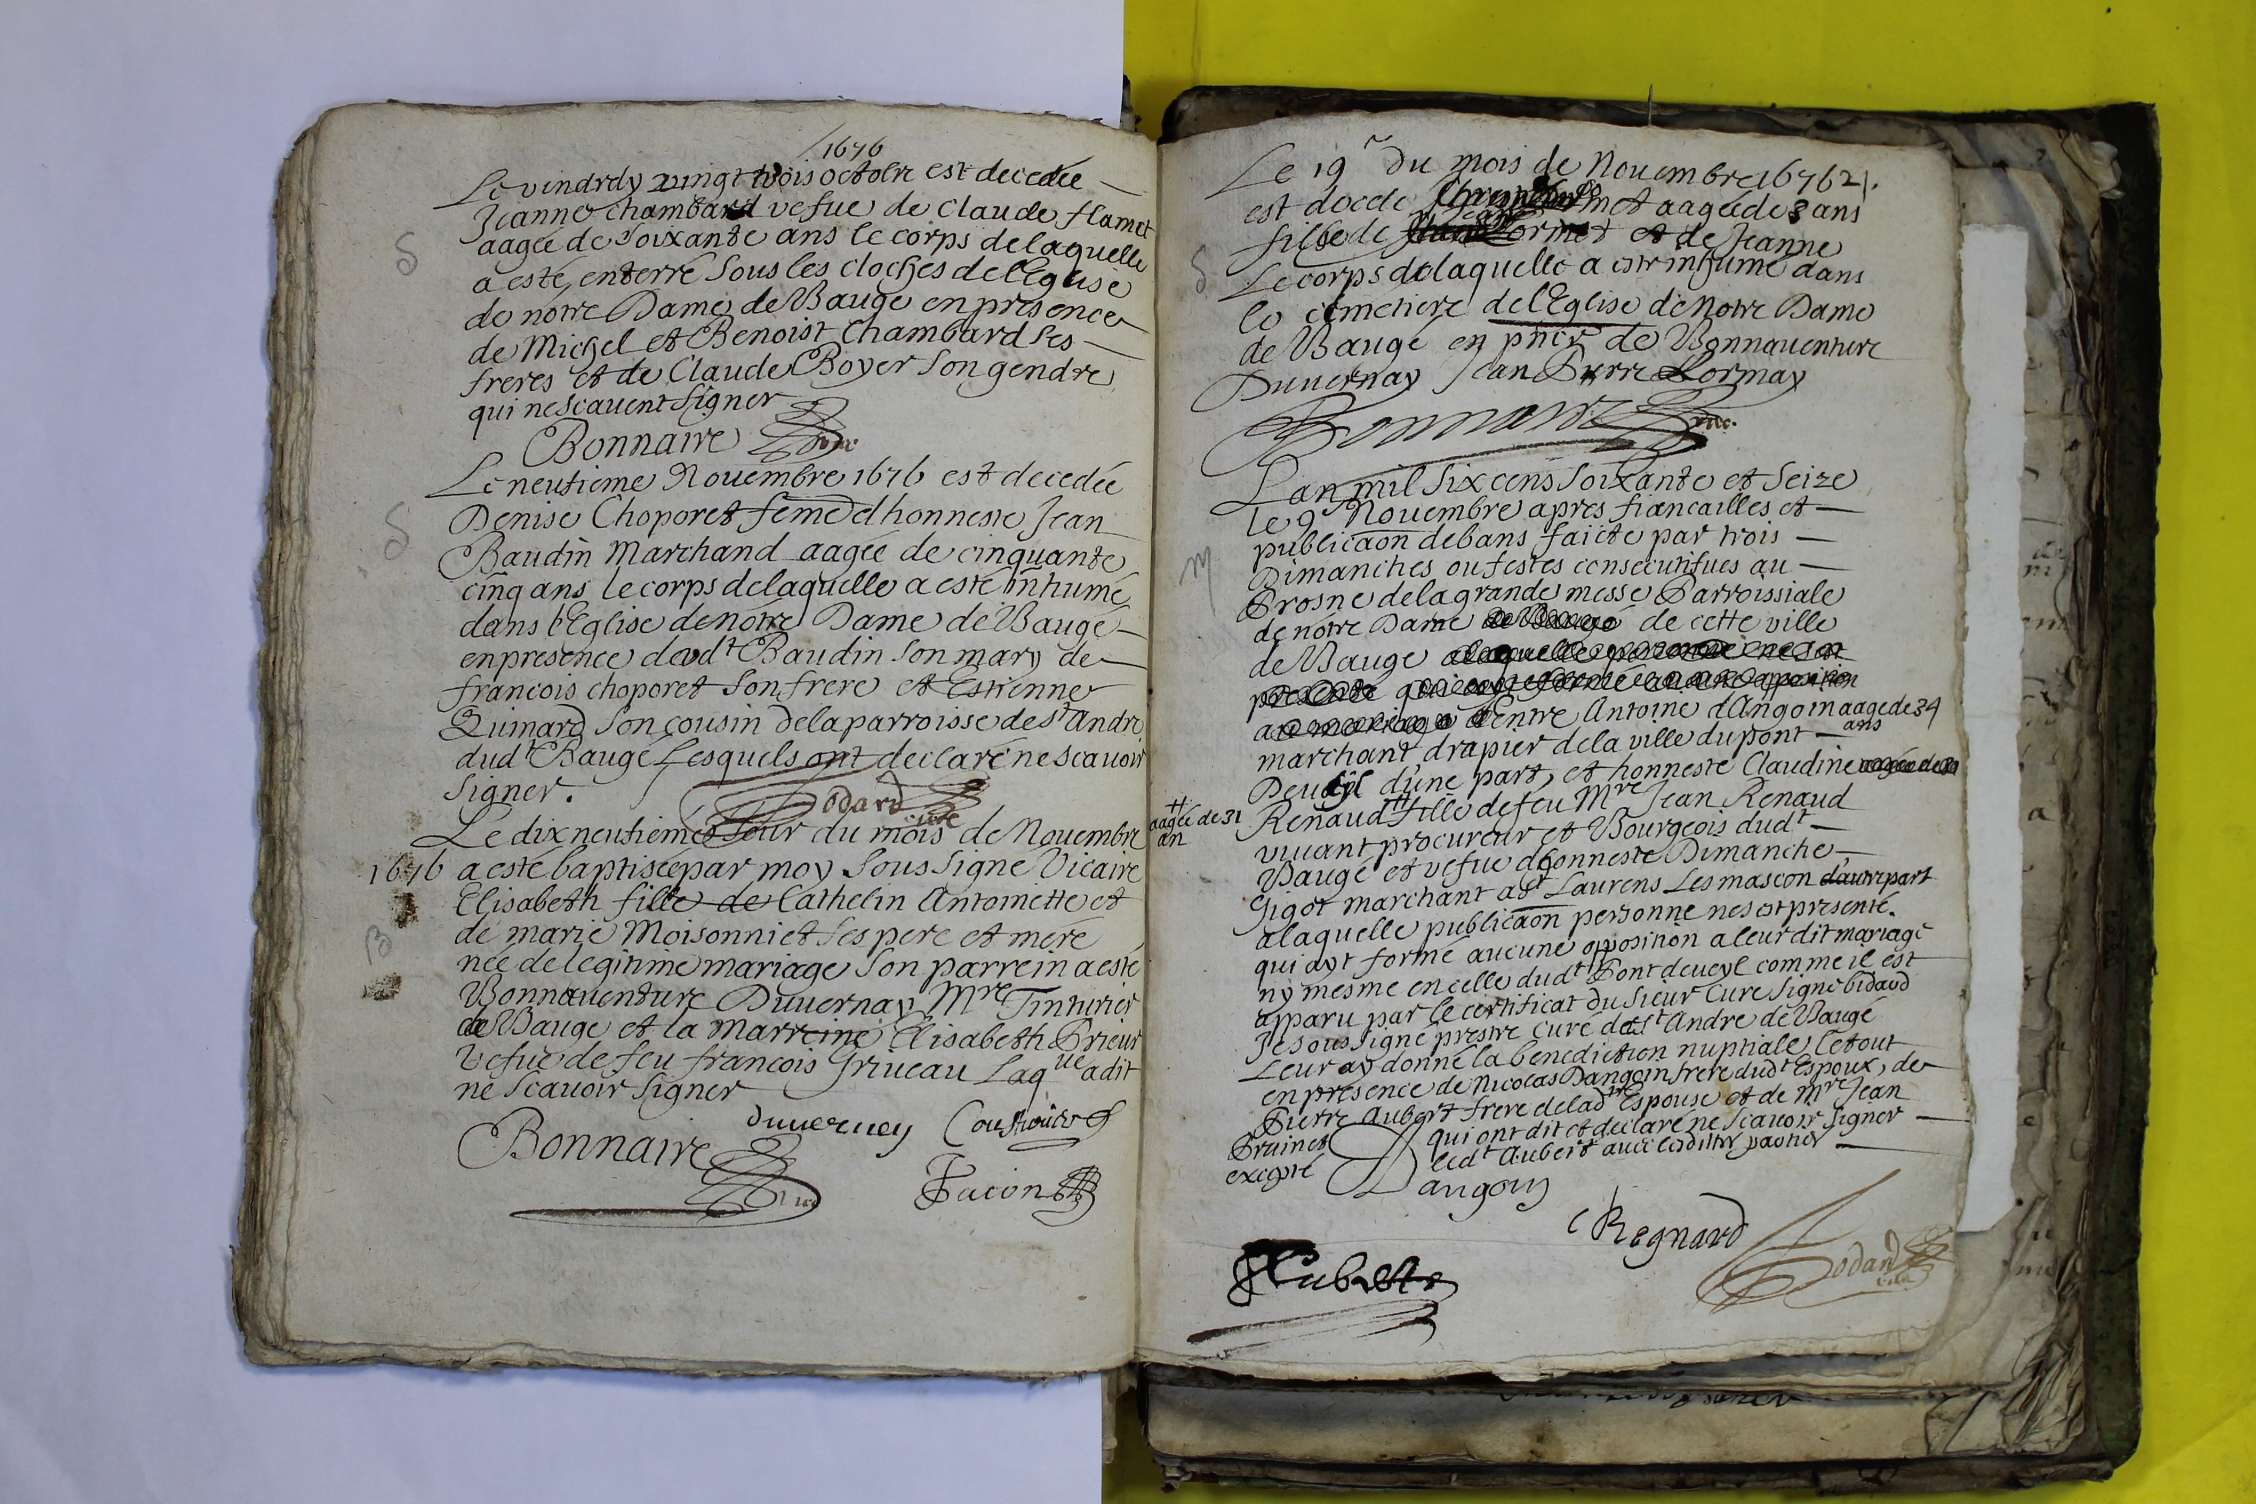 1676
Le vindrdy vingt trois octobre est decedée
Jeanne chambard vefue de Claude flamet
aagée de Soixante ans le corps delaquelle
S
a esté enterré Sous les cloches del'Eglise
de notre Dame de Baugé en presence
de Michel et Benoist Chambard Ses
freres et de Claude Boyer Son gendre
qui ne Scauent Signer
Bonnaire vic.
Le neufieme Nouembre 1676 est decedée
Denise Choporet feme d'honneste Jean
S
Baudin Marchand aagée de cinquante
cinq ans le corps delaquelle a esté inhumé
dans l'Eglise de nótre Dame de Baugé
en presence dudt Baudin Son mary de
francois choporet Son frere et Estienne
Guinard Son cousin dela parroisse de St André
dudt Baugé Lesquels ont declaré ne Scauoir
Signer.
Godard curé
Le dixneufieme Jour du mois de Nouembre
1676 a esté baptisée par moy Sous Signé Vicaire
Elisabeth fille de Cathelin Antoinette et
B
de marie Moisonniet Ses pere et mere
née de legitime mariage Son parrein a esté
Bonnauenture Duuernay Mre Tinturier
de Baugé et la marreine Elisabeth Prieur
Vefue de feu francois Griueau Laqlle a dit
ne Scauoir Signer
duuerney
Bonnaire vic
Facon
Le 19 du mois de Nouembre 1676 21.
est decede aagée de 8 ans
fille de et de Jeanne
S
Le corps de laquelle a este inhumé dans
le cimetiere de l'Eglise de Notre Dame
de Baugé en pnce de Bonnauenture
Duuernay Jean Pierre Lormay
Bonnaire vic.
L'an mil Six cens Soixante et Seize
le 9 Nouembre apres fiancailles et
publicaon de bans faicte par trois
m
Dimanches ou festes consecutifues au
Prosne dela grande messe Parroissiale
de nótre Dame de cette ville
de Baugé
d'entre Antoine d'Angoin aagé de 34
ans
marchant drapier dela ville du pont
Deueyl d'une part, et honneste Claudine
++ aagée de 31 an
Renaud ++ fille de feu Mre Jean Renaud
viuant procureur et Bourgeois dudt
Baugé et vefue d'honneste Dimanche
Gigot marchant a St Laurens Les mascon d'autre part
a laquelle publicaon personne nes est presenté.
qui ayt formé aucune opposition a leur dit mariage
ny mesme en celle dudt Pontdeueyl comme il est
apparu par le certificat du Sieur Curé Signé bidaud
Je sous signé prestre curé de St André de Baugé
Leur ay donné la benediction nuptiale le tout
en presence de Nicolas Dangoin frere dudt Espoux, de
Pierre Aubert frere de lad Espouse et de Mre Jean
Bruinet qui ont dit et declaré ne Scauoir Signer
excepté ledt Aubert
Dangoin
Regnard
Aubert
Godard curé